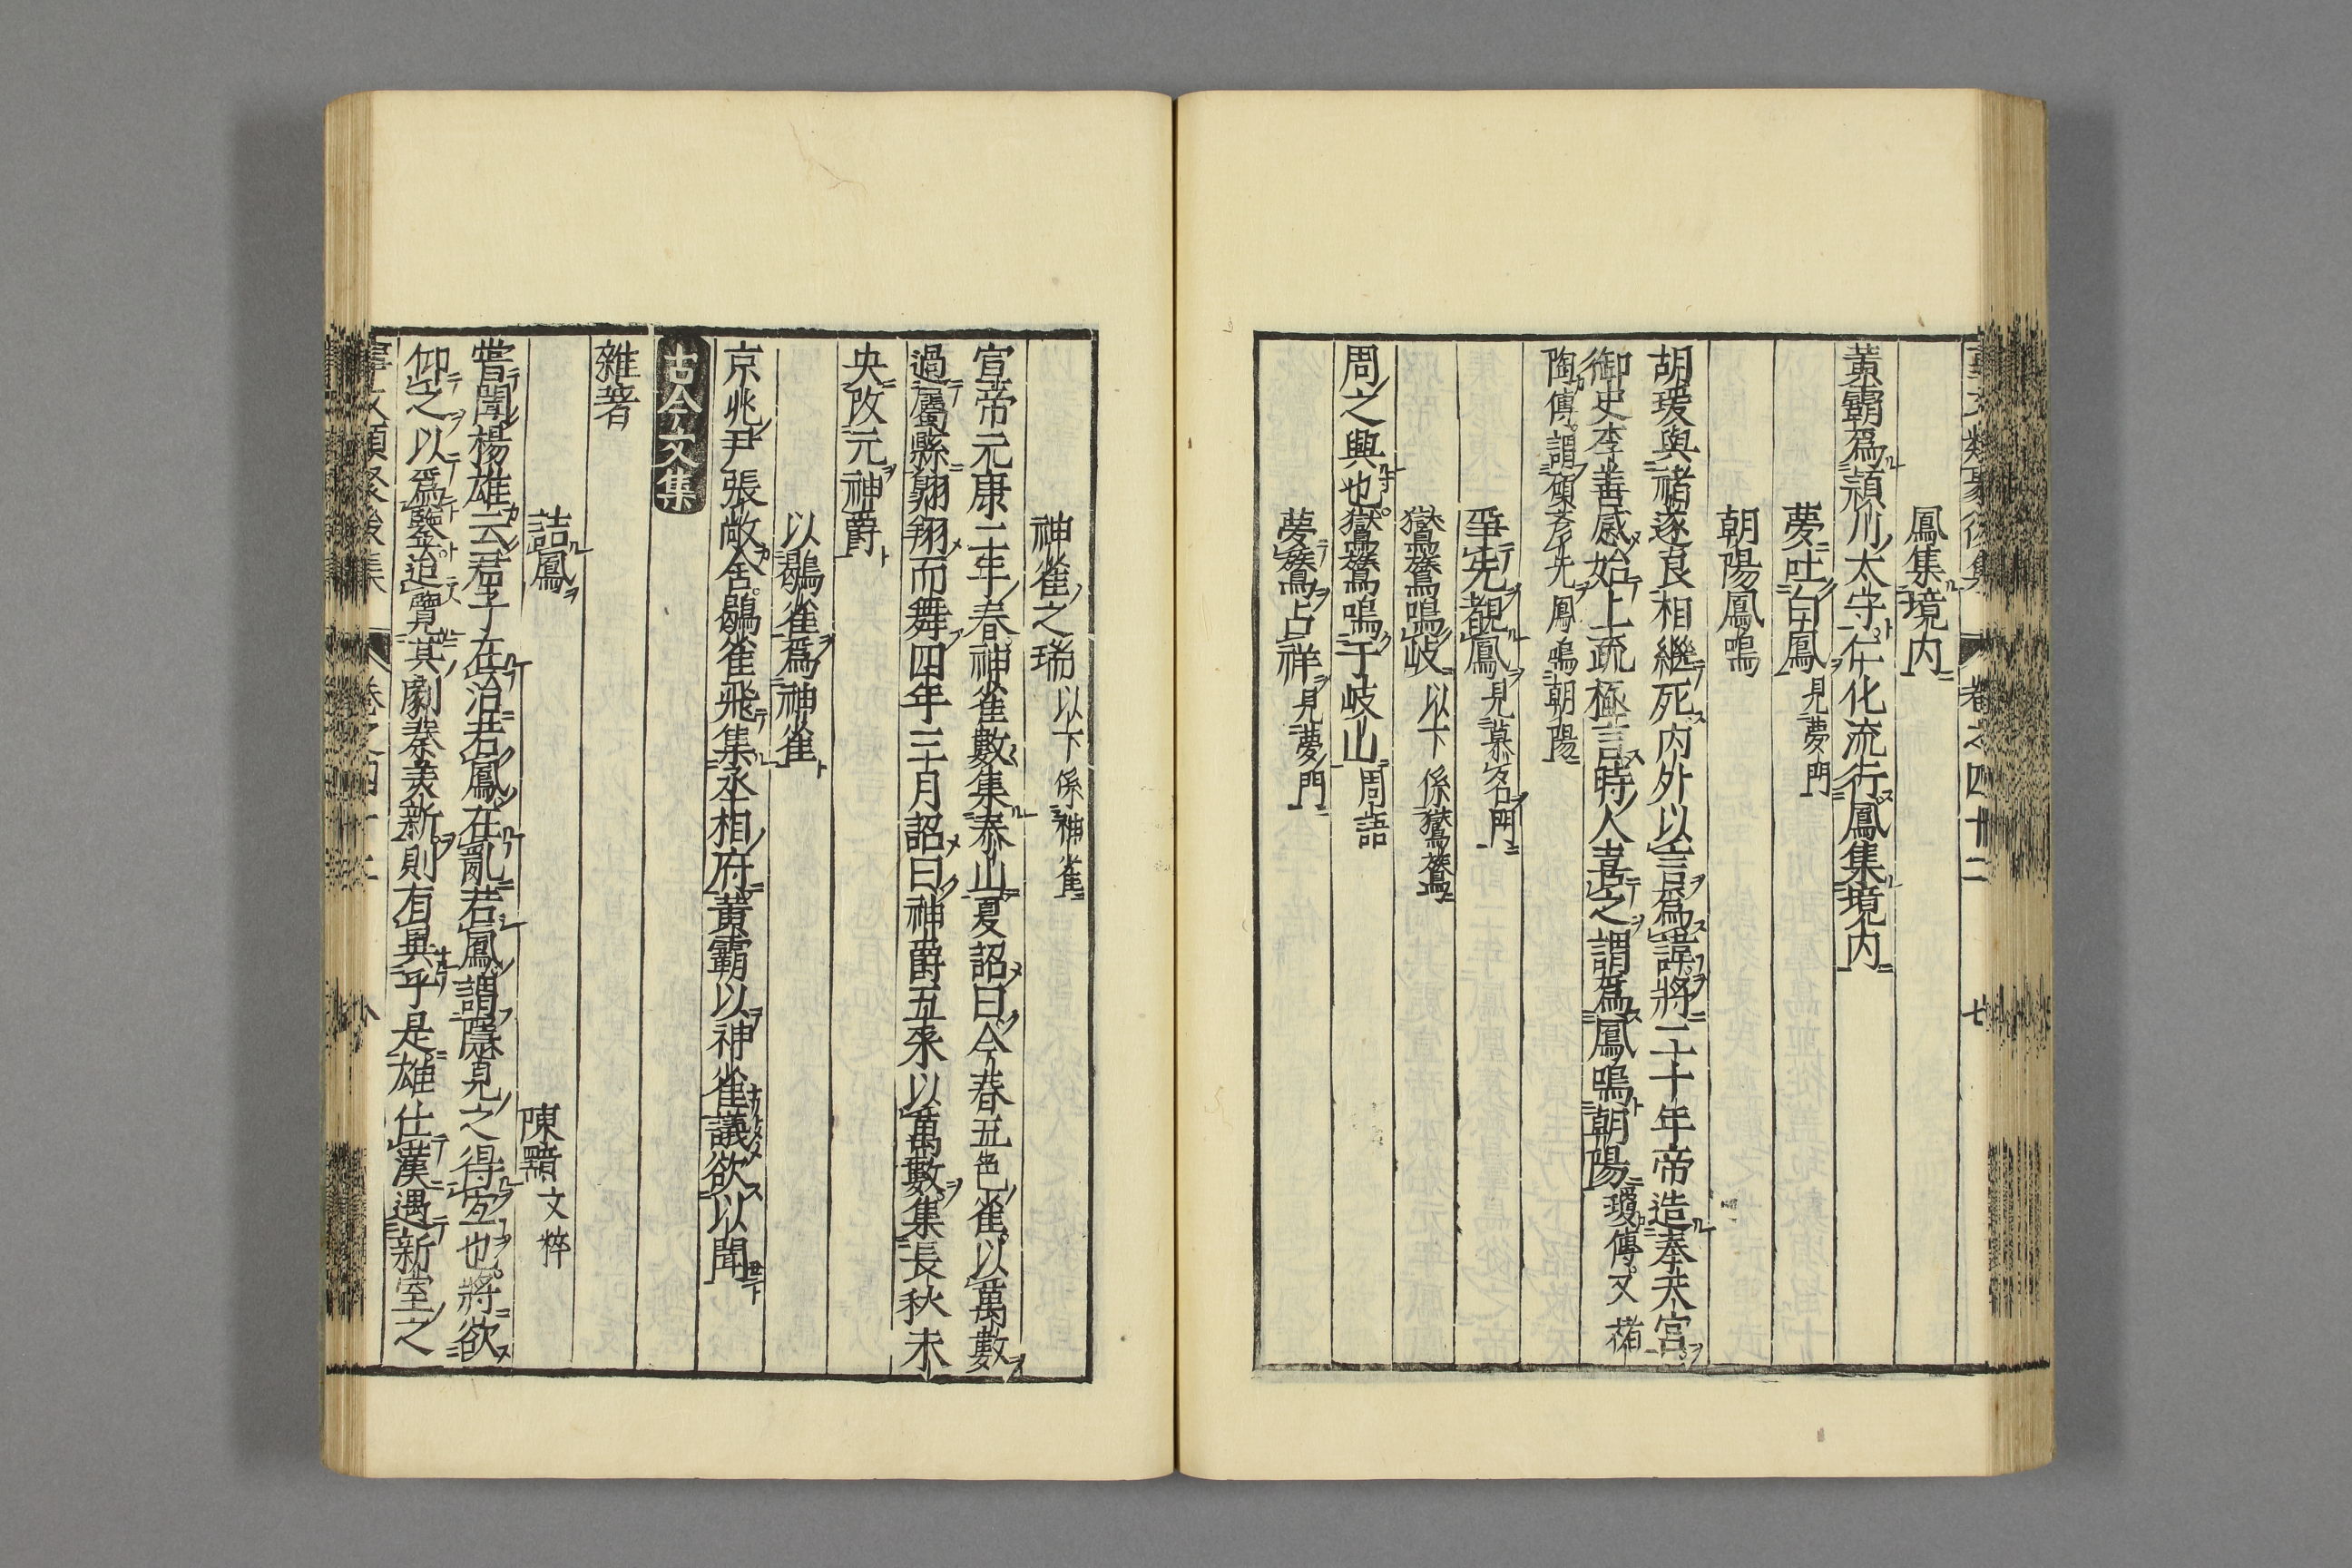 事文類聚後集 卷之四十二 七
鳳集境内
黃霸爲潁川太守仁化流行鳳集境内
夢吐白鳳 見夢門
朝陽鳳鳴
胡瑗與禇遂良相繼死内外以言爲諱將二十年帝造奉天宮
御史李善感始上疏極言時人喜之謂爲鳳鳴朝陽 瓊傳又禇
陶傳謂顧彥先鳳鳴朝陽
爭先覩鳳 見慕名門
鸑鷟鳴岐 以下係鸑鷟
周之興也鸑鷟鳴于岐山 周語
夢鷟占祥 見夢門
神雀之瑞 以下係神雀
宣帝元康二年春神雀數集泰山夏詔曰今春五色雀以萬數
過屬縣翺翔而舞四年三月詔曰神爵五采以萬數集長秋未
央改元神爵
以鶡雀爲神雀
京兆尹張敞舍鶡雀飛集丞相府黃霸以神雀議欲以聞
古今文集
雜著
詰鳳 陳黯 文粹
嘗聞楊雄云君子在治若鳳在亂若鳳謂隱見之得宜也將欲
仰之以爲鑒迨覽其劇秦美新則有異乎是雄仕漢遇新室之
事文類聚後集 卷之四十二 八